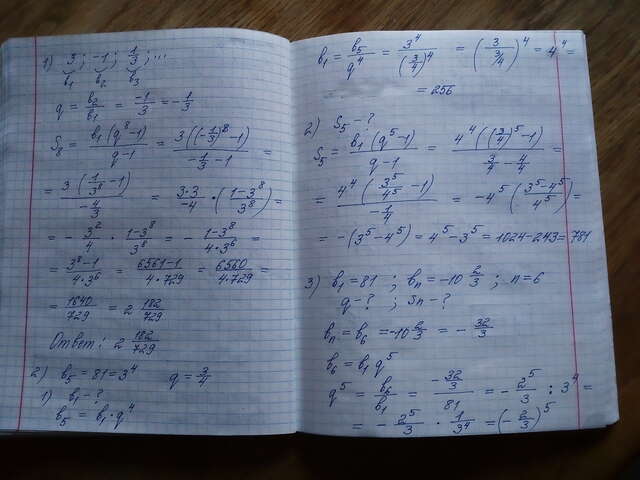 1) 3 ; -1 ; 1/3 ; ...
b₁ b₂ b₃
q = b₂/b₁ = -1/3 = -1/3
S₈ = b₁(q⁸-1)/(q-1) = 3((-1/3)⁸-1)/(-1/3-1) =
= 3(1/3⁸-1)/(-4/3) = 3·3/-4 · ((1-3⁸)/3⁸) =
= -3²/4 · (1-3⁸)/3⁸ = -(1-3⁸)/(4·3⁶) =
= (3⁸-1)/(4·3⁶) = (6561-1)/(4·729) = 6560/(4·729) =
= 1640/729 = 2 182/729
Ответ: 2 182/729
2) b₅ = 81 = 3⁴ q = 3/4
1) b₁ - ?
b₅ = b₁·q⁴
b₁ = b₅/q⁴ = 3⁴/(3/4)⁴ = (3/(3/4))⁴ = 4⁴ =
= 256
2) S₅ - ?
S₅ = b₁(q⁵-1)/(q-1) = 4⁴((3/4)⁵-1)/(3/4-4/4) =
= 4⁴(3⁵/4⁵-1)/(-1/4) = -4⁵((3⁵-4⁵)/4⁵) =
= -(3⁵-4⁵) = 4⁵-3⁵ = 1024-243 = 781
3) b₁ = 81 ; bn = -10 2/3 ; n = 6
q - ? ; Sn - ?
bn = b₆ = -10 2/3 = -32/3
b₆ = b₁ q⁵
q⁵ = b₆/b₁ = (-32/3)/81 = -2⁵/3 : 3⁴ =
= -2⁵/3 · 1/3⁴ = (-2/3)⁵